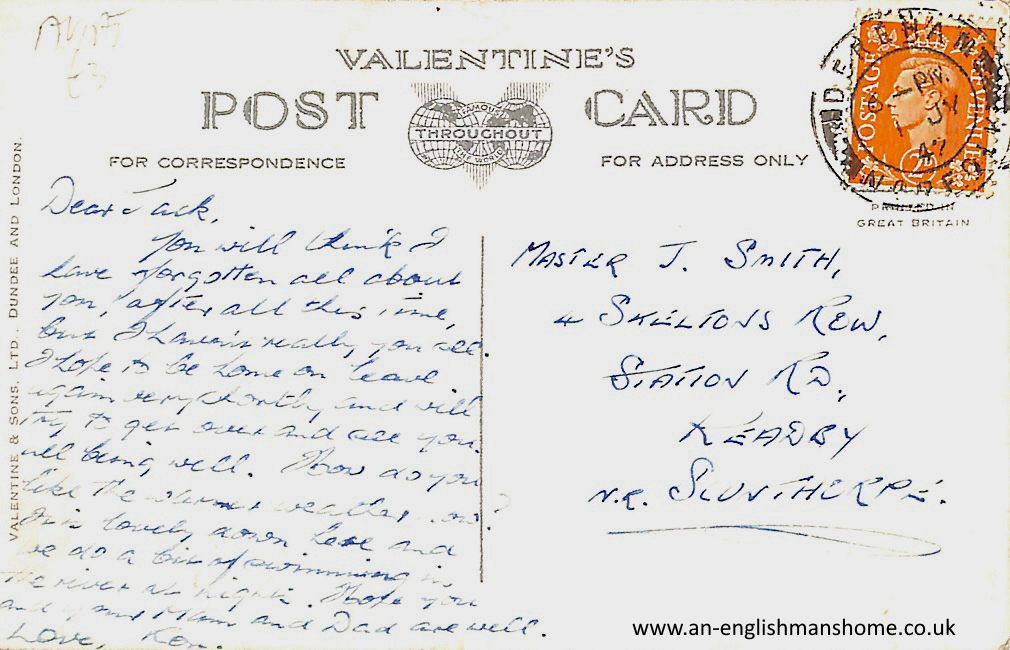 VALENTINE'S
POST CARD
FAMOUS
THROUGHOUT
THE WORLD
FOR CORRESPONDENCE
FOR ADDRESS ONLY
VALENTINE & SONS, LTD., DUNDEE AND LONDON.
POSTAGE
PRINTED IN
GREAT BRITAIN
Dear Jack,
You will think I
have forgotten all about
you, after all this time,
but I haven't really, you see.
I hope to be home on leave
again very shortly and will
try to get over and see you.
all being well. How do you
like the warmer weather now?
It is lovely down here and
we do a bit of swimming in
the river at nights. Hope you
and your Mam and Dad are well.
Love, Ken.
MASTER J. SMITH,
4 SKELTONS ROW,
STATION RD,
KEADBY
N.R. SCUNTHORPE.
www.an-englishmanshome.co.uk